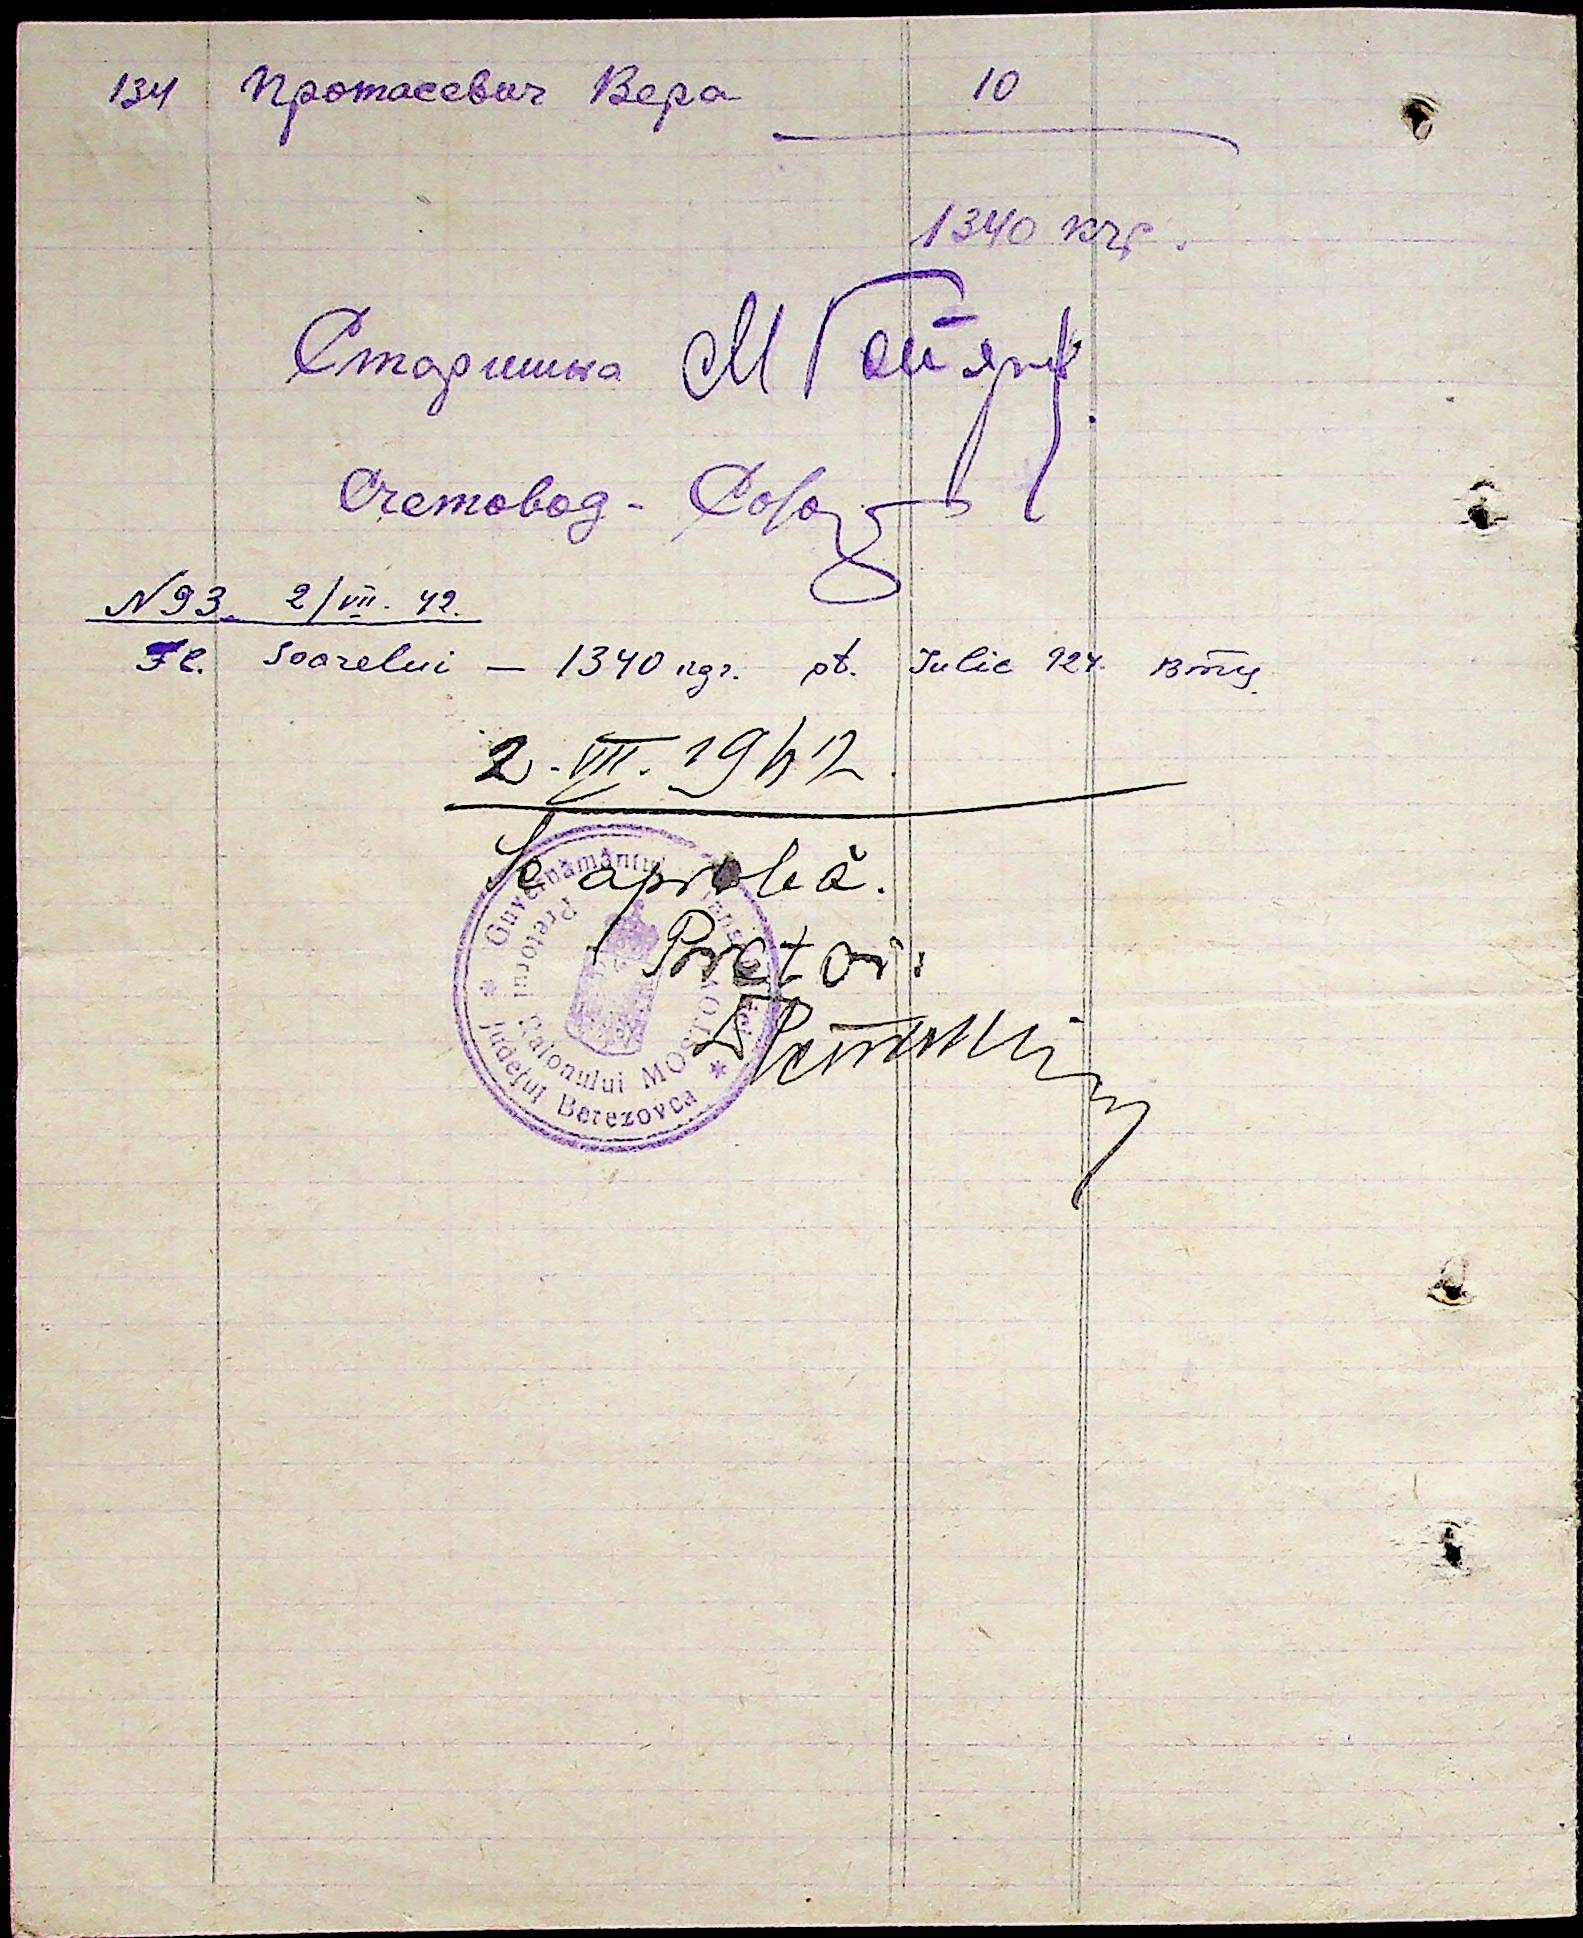 134 Протасевич Вера 10
1340 кгр.
Старшина М Гай
Счетовод -
N 93 2/VII. 42.
Fl. Soarelui — 1340 kgr. pt. Iulie
2. VII. 1942.
Se aprobă.
Pretor:
Guvernământul Transnistriei
Pretorul Raionului MOSTOVOI
* Județul Berezovca *